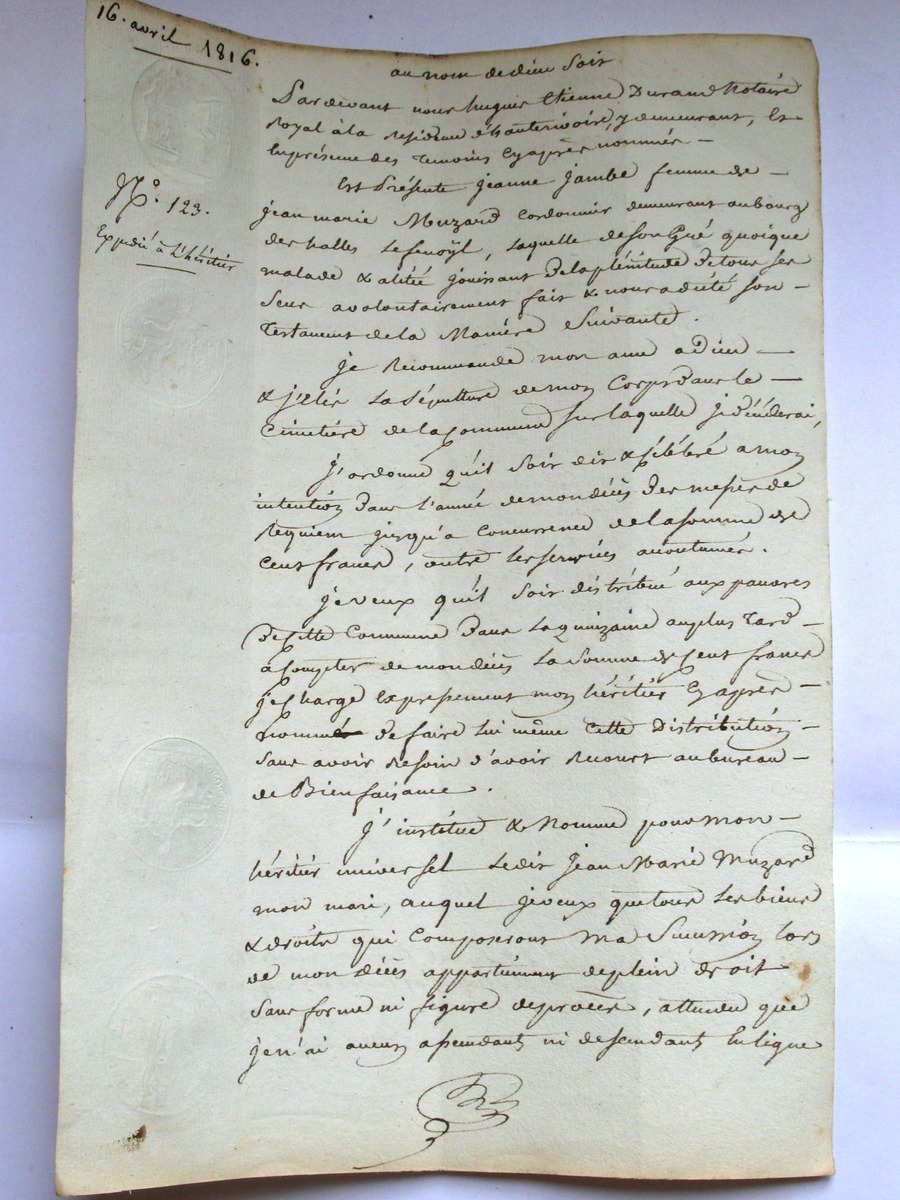 16. avril 1816.
N°. 123.
Expédié à l'héritier
au nom de dieu soit
Pardevant nous hugues Etienne Durand Notaire
Royal à la residence d'hauterivoire, y demeurant, et
En présence des Temoins Cyaprès nommés —
Est Présente jeanne jambe femme de —
jean marie Muzard Cordonnier demeurant au bourg
des halles Lefenoÿl, laquelle de son Gré quoique
malade & alitée jouissant de la plénitude de tous ses
sens a volontairement fait & nous a dicté son —
Testament de la Manière Suivante.
je Recommande mon ame a Dieu —
& j'élis la sépulture de mon Corps dans le —
Cimetière de la Commune sur laquelle je décéderai,
j'ordonne qu'il soit dit & célébré a mon
intention dans l'année de mon décès des messes de
Requiem jusqu'a concurrence de la somme de
Cent francs, outre les services acoutumés.
je veux qu'il soit distribué aux pauvres
de cette Commune dans la quinzaine au plus Tard —
à compter de mon décès la somme de cent francs
je charge expressement mon héritier Cyaprès —
nommé de faire lui même cette Distribution —
sans avoir besoin d'avoir Recourt au bureau —
de Bienfaisance.
j'institue & Nomme pour mon —
héritier universel ledit jean Marie Muzard
mon mari, auquel je veux que tous les biens
& droits qui composeront ma Succession lors
de mon décès appartiennent de plein droit
sans forme ni figure de procès, attendu que
je n'ai aucun ascendants ni descendants en ligne